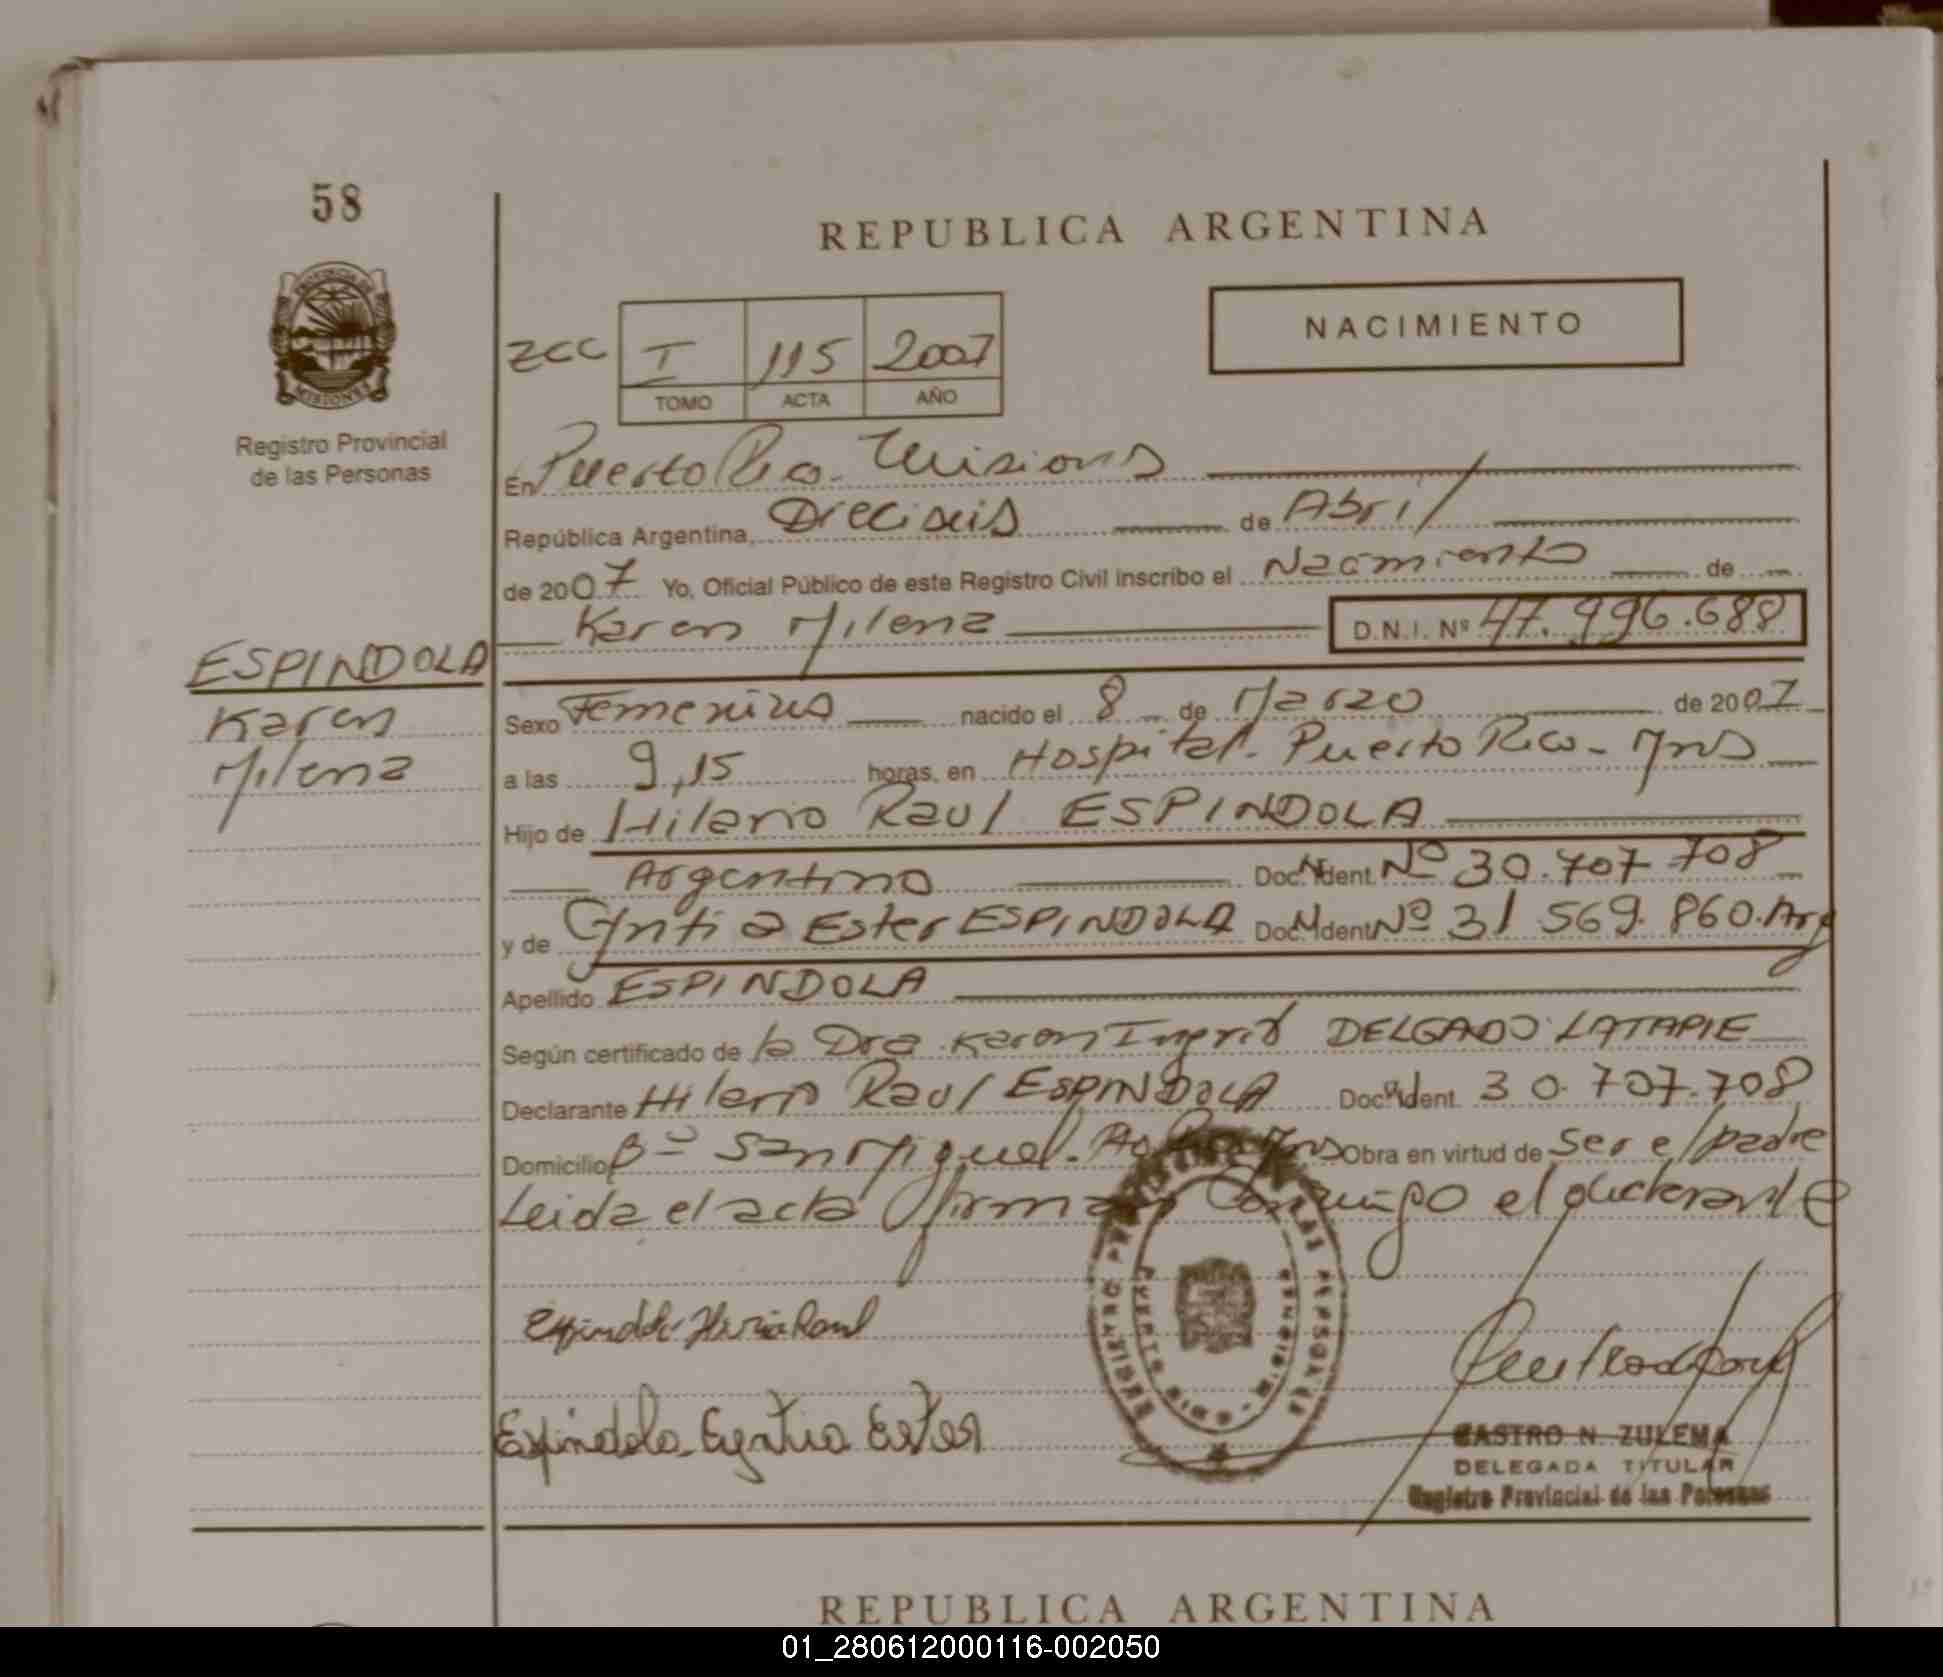 58
REPUBLICA ARGENTINA
PROVINCIA DE
MISIONES
Registro Provincial
de las Personas
NACIMIENTO
ZCC I 115 2007
TOMO ACTA AÑO
En Puerto Rico - Misiones
República Argentina, Dieciseis de Abril
de 2007 Yo, Oficial Público de este Registro Civil inscribo el Nacimiento de
Karen Milena D.N.I. Nº 47.996.688
ESPINDOLA
Karen
Milena
Sexo Femenino nacido el 8 de Marzo de 2007
a las 9,15 horas, en Hospital - Puerto Rico - Mns
Hijo de Hilario Raul ESPINDOLA
Argentino Doc. Ident. Nº 30.707.708
y de Cyntia Ester ESPINDOLA Doc. Ident Nº 31 569. 860. Arg
Apellido ESPINDOLA
Según certificado de la Dra. Karen Ingrid DELGADO LATAPIE
Declarante Hilario Raul ESPINDOLA Doc. Ident. 30.707.708
Domicilio Bº San Miguel - Pto Rico Mns Obra en virtud de ser el padre
Leida el acta firman conmigo el declarante
Espindola Hilario Raul
Espindola Cyntia Ester
REGISTRO PROVINCIAL DE LAS PERSONAS
PUERTO RICO - MISIONES
CASTRO N. ZULEMA
DELEGADA TITULAR
Registro Provincial de las Personas
REPUBLICA ARGENTINA
01_280612000116-002050